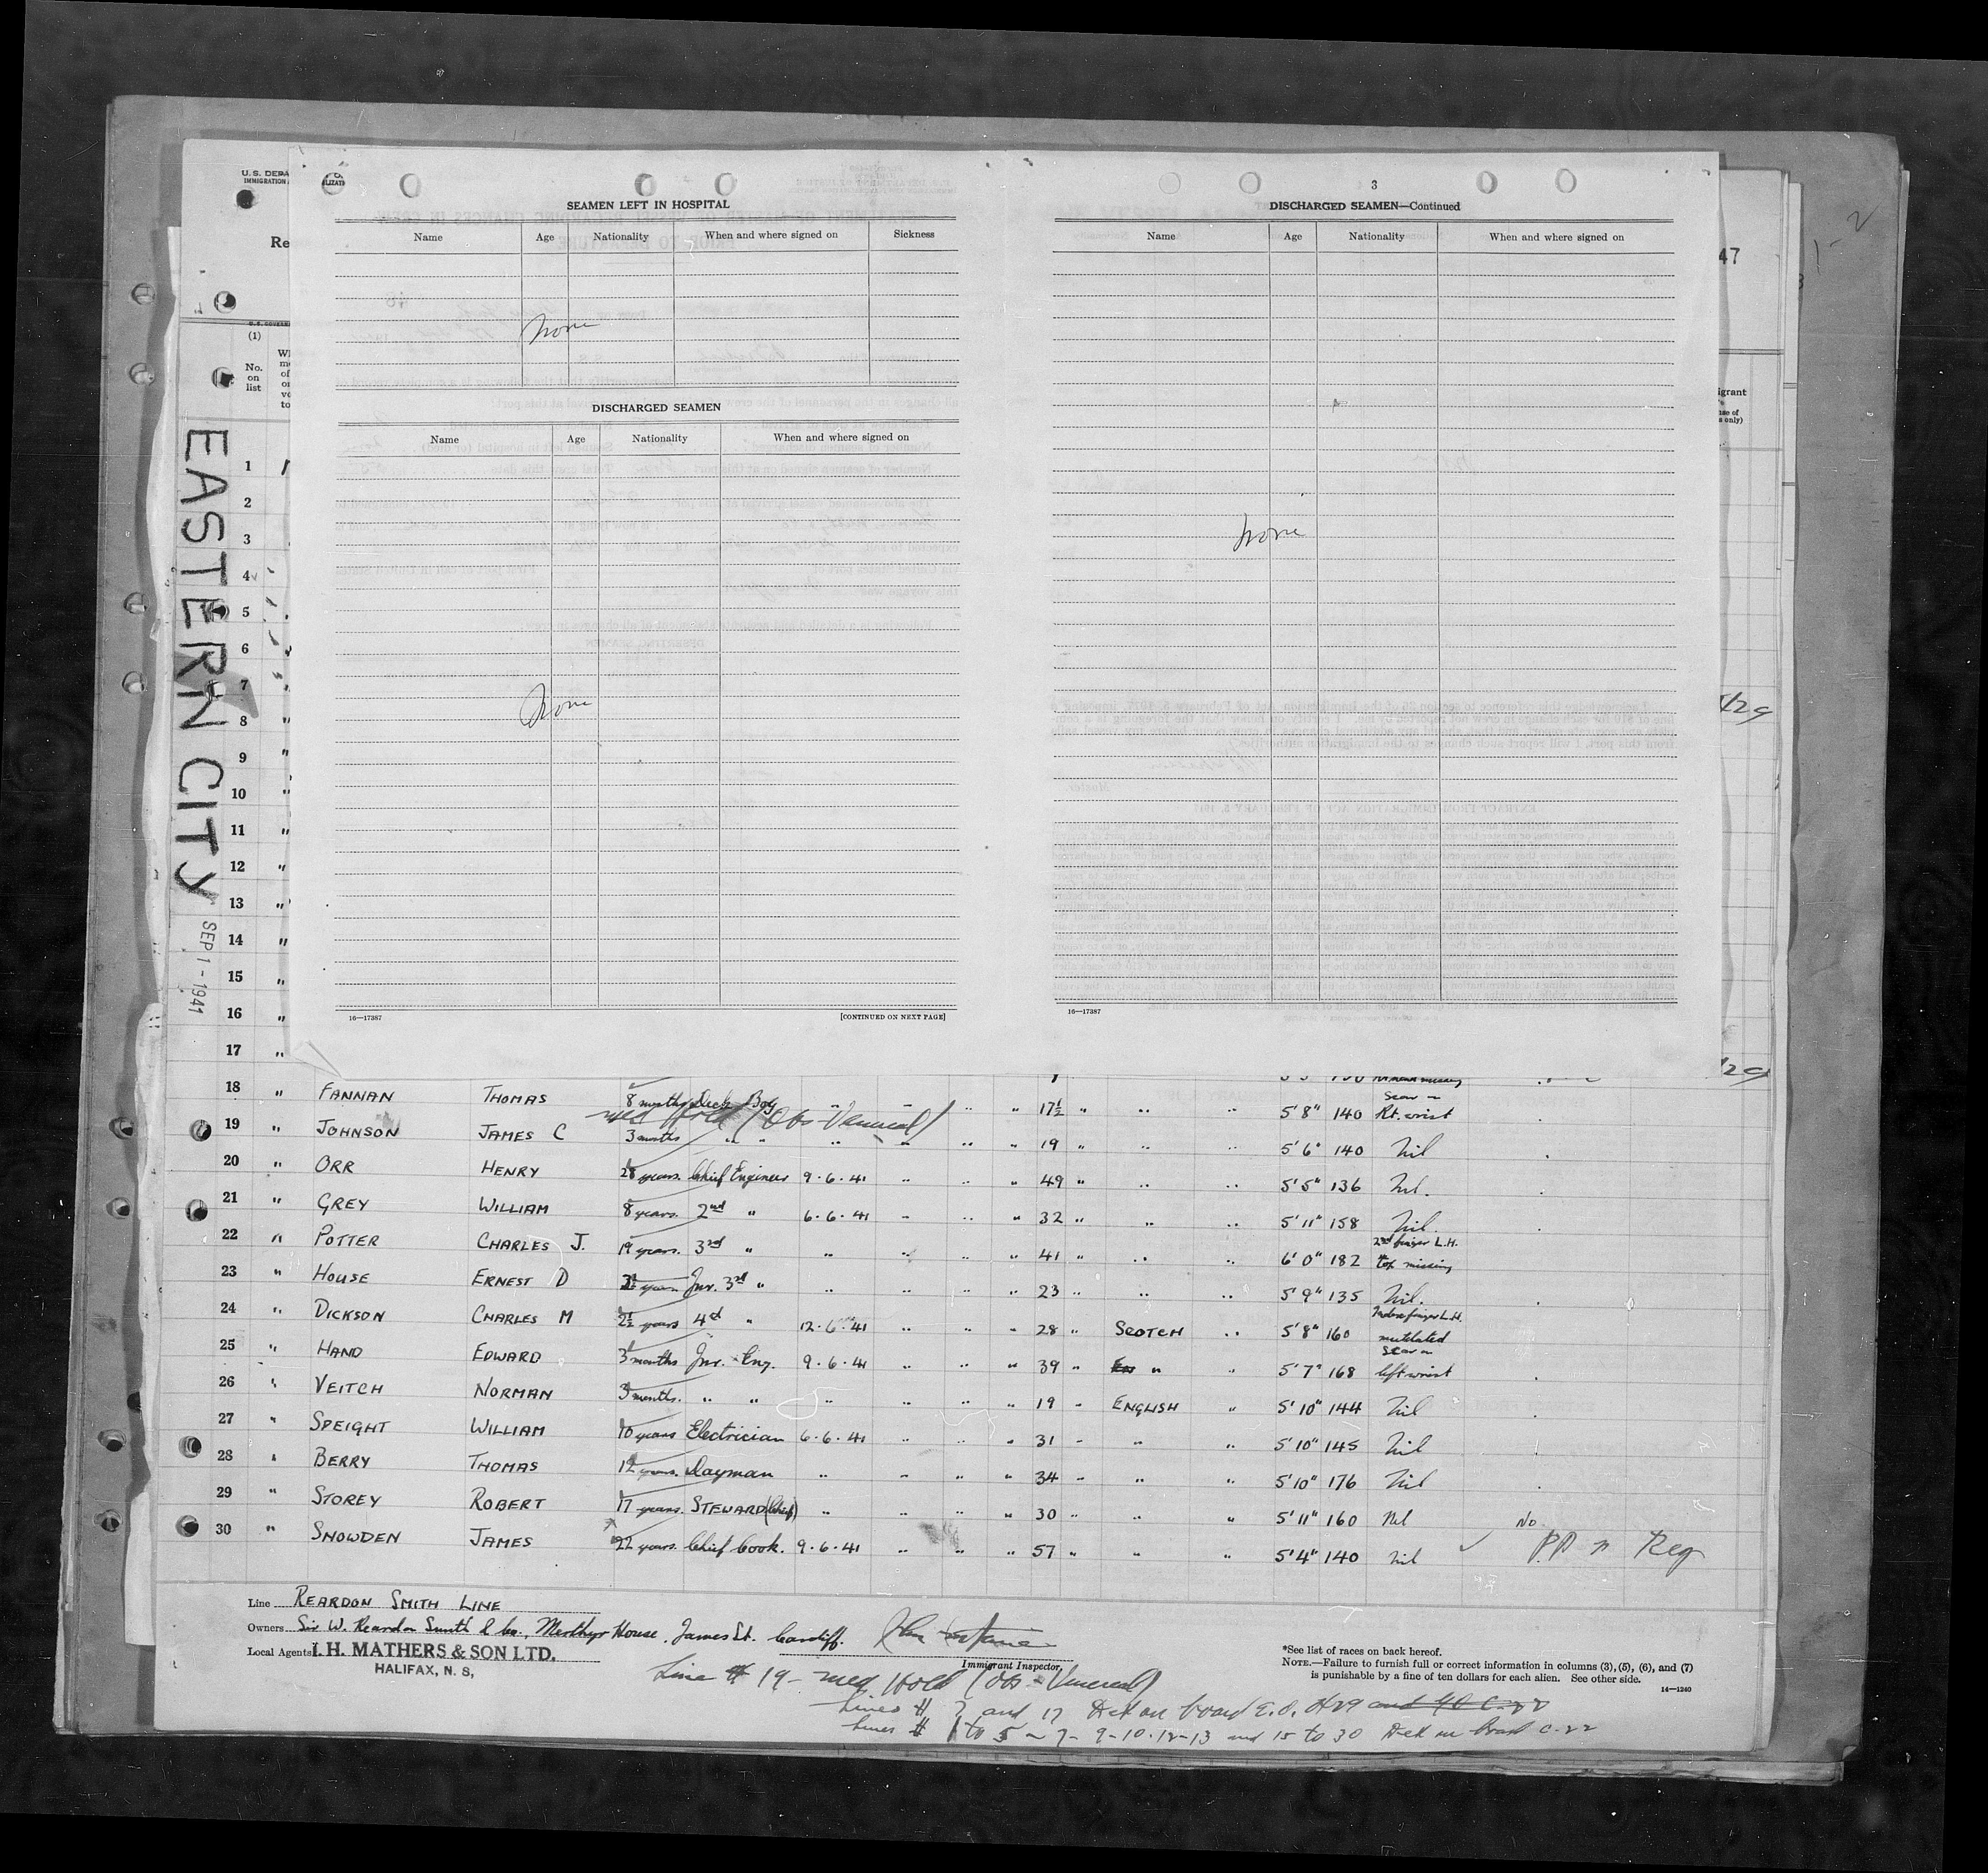 U.S. DEPA
IMMIGRATION
Re
47
1-2
3
SEAMEN LEFT IN HOSPITAL
Name Age Nationality When and where signed on Sickness
None
DISCHARGED SEAMEN
Name Age Nationality When and where signed on
None
16—17387 [CONTINUED ON NEXT PAGE]
DISCHARGED SEAMEN—Continued
Name Age Nationality When and where signed on
None
16—17387
(1)
No. on list
EASTERN CITY
SEP 1 - 1941
1
2
3
4
5
6
7
8
9
10
11
12
13
14
15
16
17
18 " FANNAN THOMAS 8 months Deck Boy " " " " 17½ " " " 5'8" 140 Scar on Rt. wrist
Med Hold (Obs-Venereal)
19 " JOHNSON JAMES C 3 months " " " " " " 19 " " " 5'6" 140 Nil
20 " ORR HENRY 28 years. Chief Engineer 9.6.41 " " " 49 " " " 5'5" 136 Nil.
21 " GREY WILLIAM 8 years. 2nd " 6.6.41 " " " 32 " " " 5'11" 158 Nil.
22 " POTTER CHARLES J. 19 years. 3rd " " " " " 41 " " " 6'0" 182 2nd finger L.H. top missing
23 " HOUSE ERNEST D 3½ years Jnr. 3rd " " " " " 23 " " " 5'9" 135 Nil.
24 " DICKSON CHARLES M 2½ years 4th " 12.6.41 " " " 28 " SCOTCH " 5'8" 160 Index finger L.H. mutilated
25 " HAND EDWARD 3 months Jnr. Eng. 9.6.41 " " " 39 " " " 5'7" 168 Scar on left wrist
26 " VEITCH NORMAN 3 months. " " " " " " 19 " ENGLISH " 5'10" 144 Nil
27 " SPEIGHT WILLIAM 10 years Electrician 6.6.41 " " " 31 " " " 5'10" 145 Nil
28 " BERRY THOMAS 12 years. Dayman " " " " 34 " " " 5'10" 176 Nil
29 " STOREY ROBERT 17 years. STEWARD (Chief) " " " " 30 " " " 5'11" 160 Nil
30 " SNOWDEN JAMES 22 years. Chief Cook. 9.6.41 " " " 57 " " " 5'4" 140 Nil No PP n Reg
Line REARDON SMITH LINE
Owners Sir W. Reardon Smith & Co., Merthyr House, James St. Cardiff.
Local Agents I. H. MATHERS & SON LTD.
HALIFAX, N. S,
Immigrant Inspector.
*See list of races on back hereof.
NOTE.—Failure to furnish full or correct information in columns (3), (5), (6), and (7)
is punishable by a fine of ten dollars for each alien. See other side.
14—1240
Line # 19 - Med Hold (Obs - Venereal)
Lines # 7 and 17 Det on board E.O. 8429 and 40 C-22
Lines # 1 to 5 - 7 - 9-10-12-13 and 15 to 30 Det on board C-22